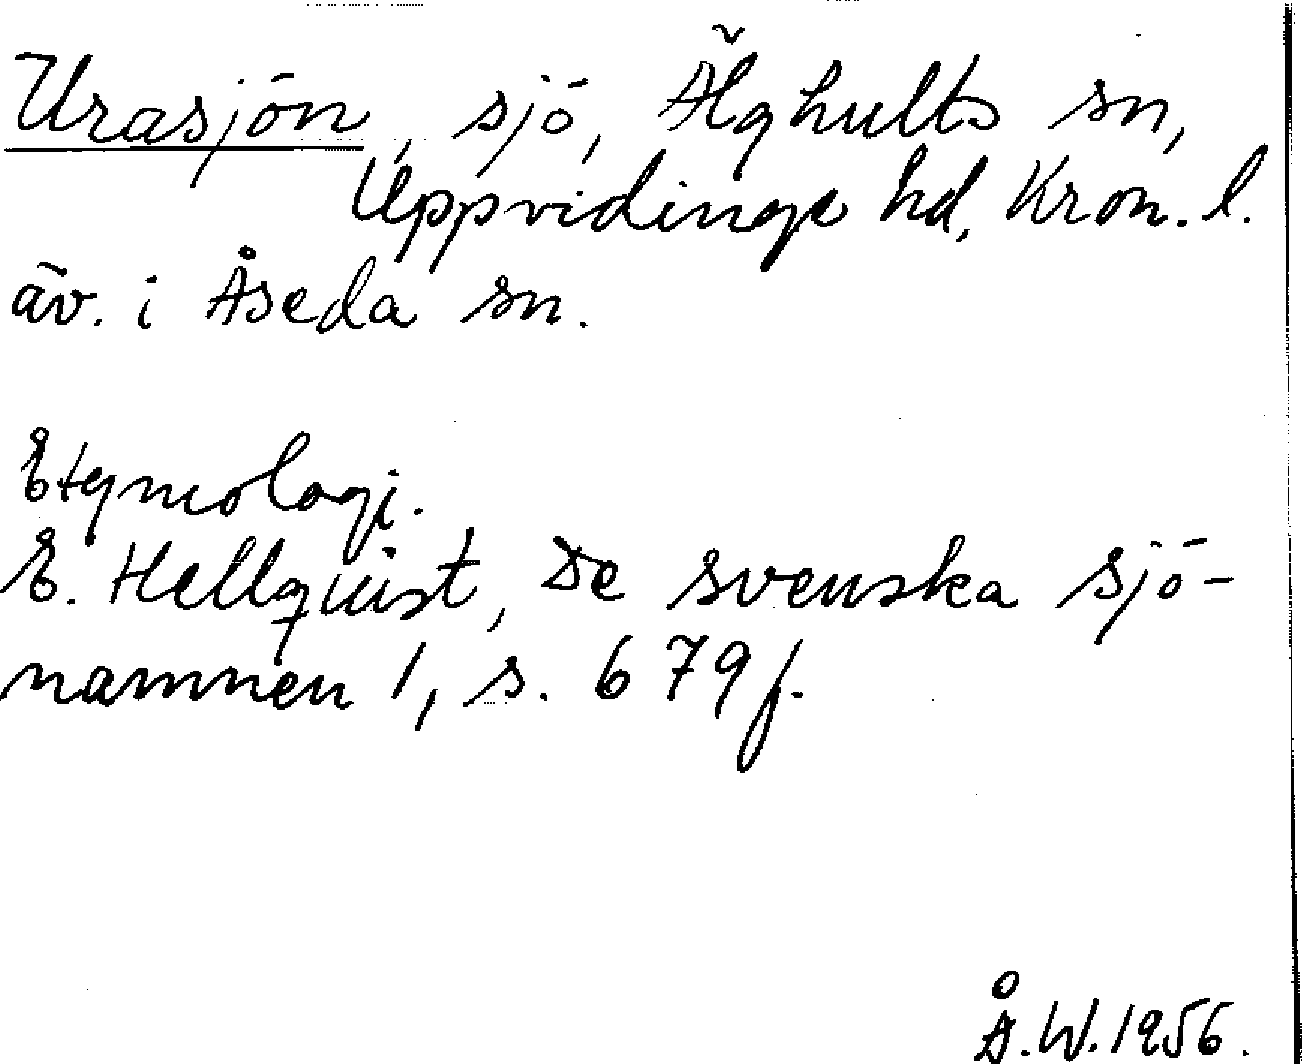 Urasjön, sjö, Älghults sn,
Uppvidinge hd, Kron. l.
äv. i Åseda sn.
Etymologi.
E. Hellquist, De svenska sjö-
namnen 1, s. 679 f.
Å.W. 1956.